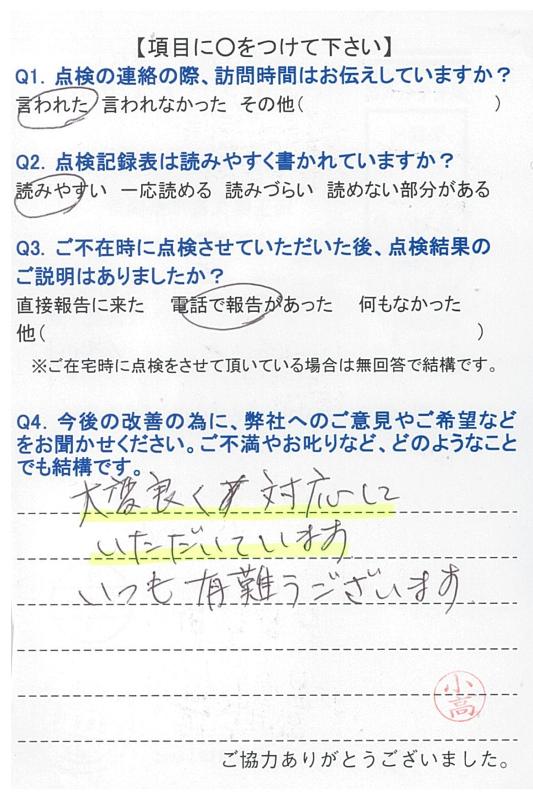 【項目に○をつけて下さい】
Q1. 点検の連絡の際、訪問時間はお伝えしていますか？
言われた 言われなかった その他(　　　　　　　　)
Q2. 点検記録表は読みやすく書かれていますか？
読みやすい 一応読める 読みづらい 読めない部分がある
Q3. ご不在時に点検させていただいた後、点検結果の
ご説明はありましたか？
直接報告に来た 電話で報告があった 何もなかった
他(　　　　　　　　)
※ご在宅時に点検をさせて頂いている場合は無回答で結構です。
Q4. 今後の改善の為に、弊社へのご意見やご希望など
をお聞かせください。ご不満やお叱りなど、どのようなこと
でも結構です。
大変良く対応して
いただいています
いつも有難うございます
小高
ご協力ありがとうございました。